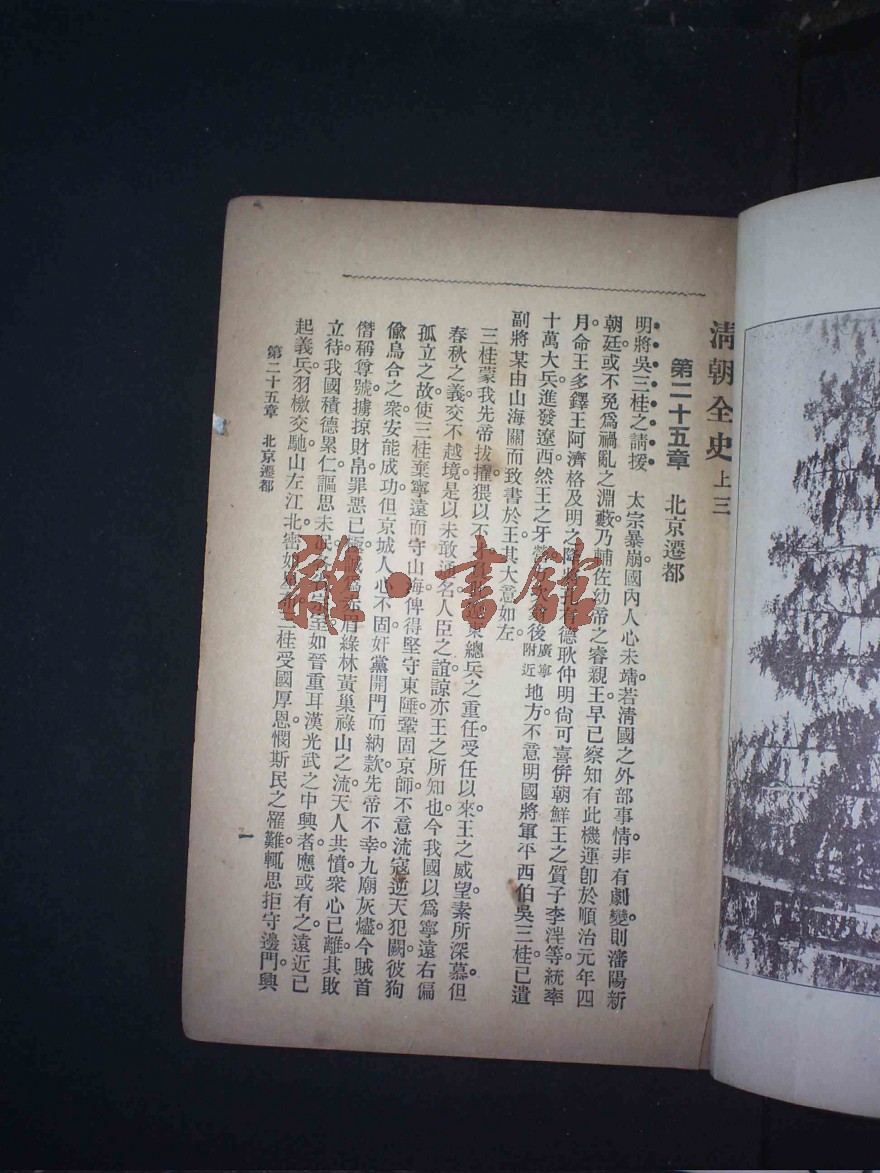 清朝全史 上三
第二十五章 北京遷都
明將吳三桂之請援 太宗暴崩。國內人心未靖。若清國之外部事情。非有劇變。則瀋陽新
朝廷。或不免爲禍亂之淵藪。乃輔佐幼帝之睿親王。早已察知有此機運。卽於順治元年四
月。命王多鐸王阿濟格及明之降將孔有德耿仲明尙可喜併朝鮮王之質子李淏等。統率
十萬大兵進發遼西。然王之牙營後廣寧附近地方。不意明國將軍平西伯吳三桂已遣
副將某由山海關而致書於王。其大意如左。
三桂蒙我先帝拔擢。猥以總兵之重任。受任以來。王之威望。素所深慕。但
春秋之義。交不越境。是以未敢通名。人臣之誼。諒亦王之所知也。今我國以爲寧遠右偏
孤立之故。使三桂棄寧遠而守山海。俾得堅守東陲。鞏固京師。不意流寇逆天犯闕。彼狗
偸烏合之衆。安能成功。但京城人心不固。奸黨開門而納款。先帝不幸。九廟灰燼。今賊首
僭稱尊號。擄掠財帛。罪惡已極。誠赤眉綠林黃巢祿山之流。天人共憤。衆心已離。其敗
立待。我國積德累仁。謳思未泯。各至如晉重耳漢光武之中興者。應或有之。遠近已
起義兵。羽檄交馳。山左江北。密如三桂受國厚恩。憫斯民之罹難。輒思拒守邊門。興
第二十五章 北京遷都
一
雜·書館